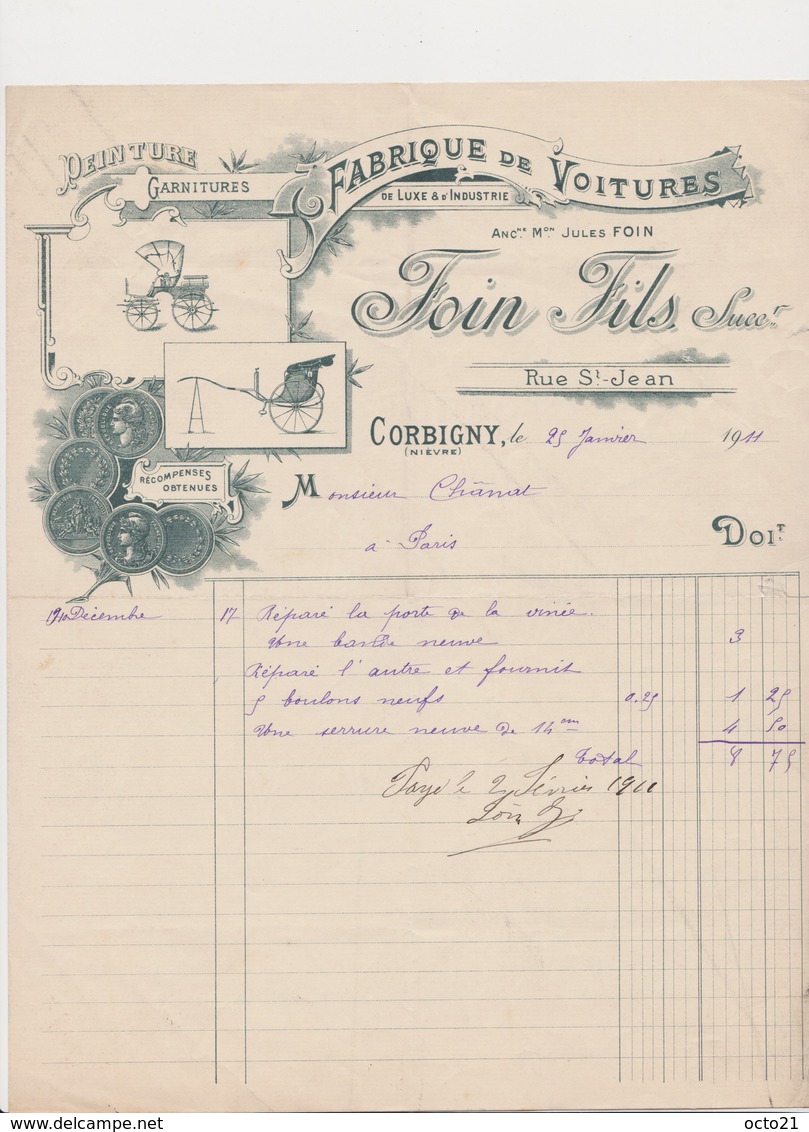 PEINTURE
GARNITURES
FABRIQUE DE VOITURES
DE LUXE & D'INDUSTRIE
ANC.NE M.ON JULES FOIN
Foin Fils, Succ.r
RUE S.T-JEAN
RÉCOMPENSES
OBTENUES
CORBIGNY, le 25 Janvier 1911
(NIÈVRE)
Monsieur Chânat
à Paris
DOIT
1910 Décembre 17 Réparé la porte de la vinée.
Une bande neuve 3
Réparé l'autre et fournit
5 boulons neufs 0.25 1 25
Une serrure neuve de 14 cm 4 50
Total 8 75
Payé le 2 Février 1911
octo21